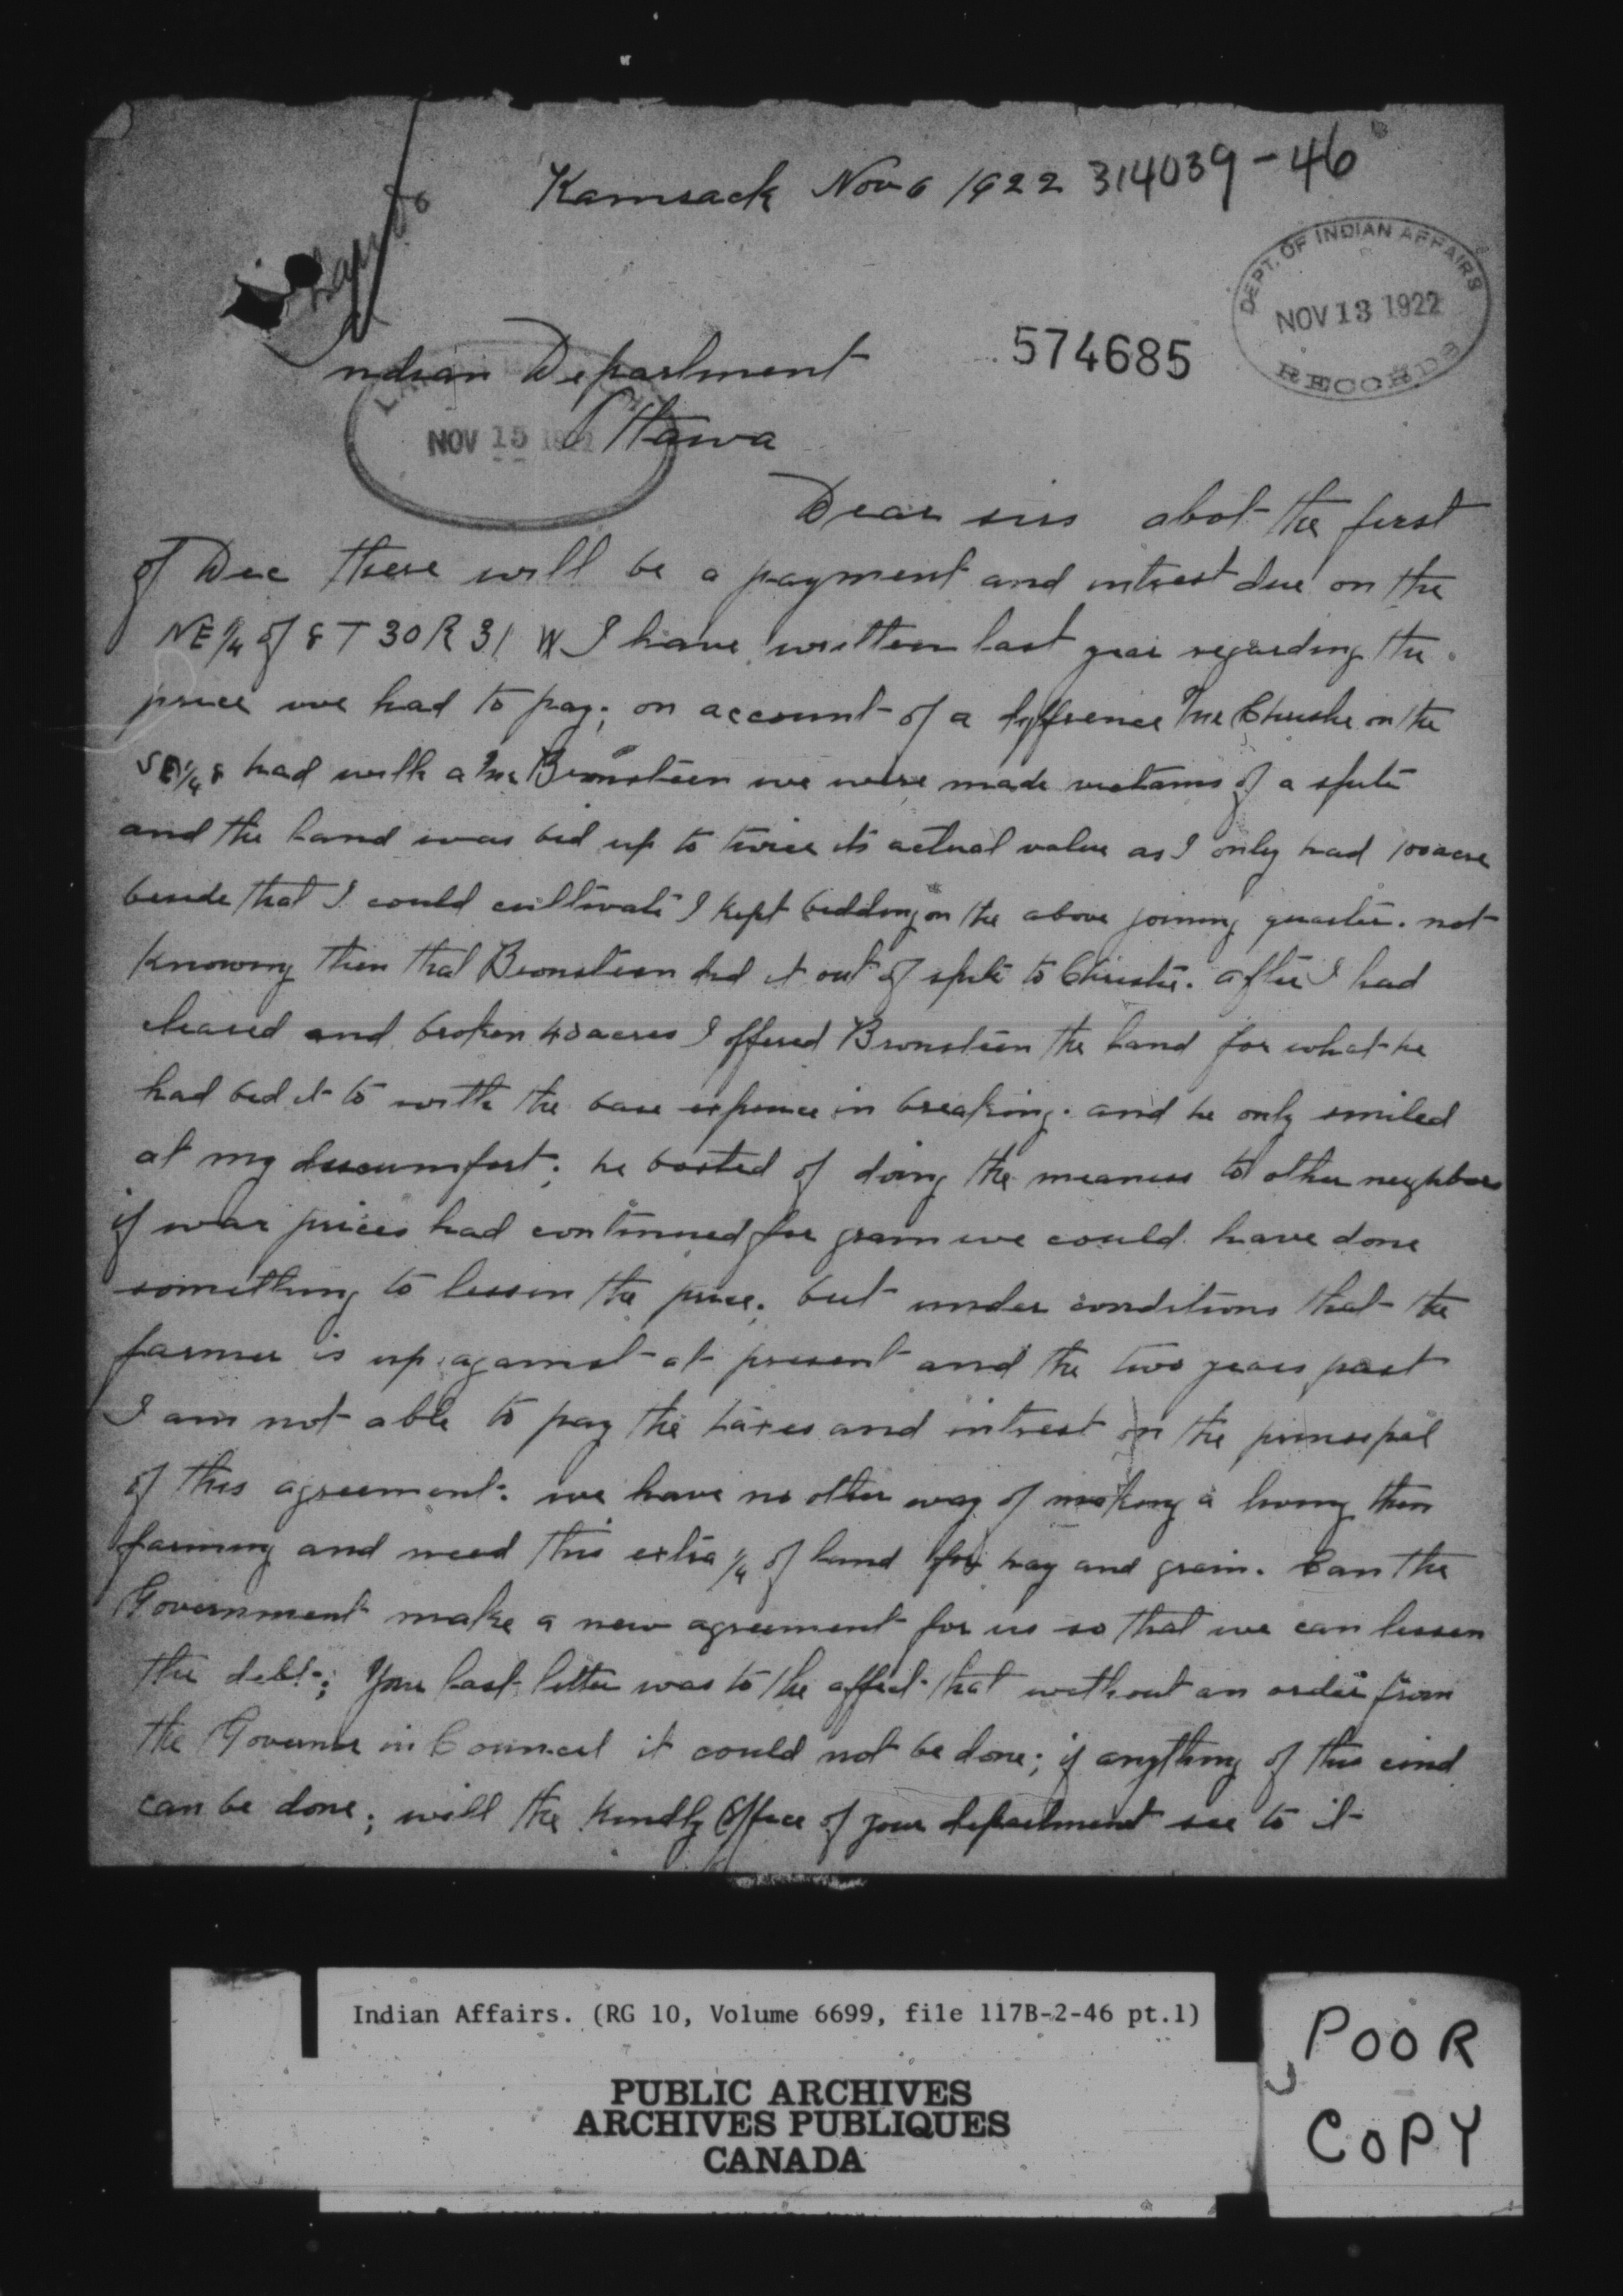 Kamsack Nov 6 1922 314039-46
DEPT. OF INDIAN AFFAIRS
NOV 13 1922
RECORDS
574685
Indian Department
NOV 15
Ottawa
Dear sirs abot the first
of Dec there will be a payment and intrest due on the
NE 1/4 of 8 T 30 R 31 W I have written last year regarding the
price we had to pay; on account of a diffrence Mr Christie on the
SE 1/4 8 had with a Mr Bronstien we were made victams of a spite
and the land was bid up to twice its actual value as I only had 100 acre
beside that I could cultivate I kept bidding on the above joining quarter. not
knowing then that Bronstien did it out of spite to Christie. after I had
cleared and broken 40 acres I offered Bronstien the land for what he
had bid it to with the bare expence in breaking. and he only smiled
at my discumfort; he bosted of doing the meaness to other neighbors
if war prices had continued for grain we could have done
something to lessen the price. but under conditions that the
farmer is up against at present and the two years past
I am not able to pay the taxes and intrest on the prinsipel
of this agreement. we have no other way of making a living then
farming and need this extra 1/4 of land for hay and grain. Can the
Government make a new agreement for us so that we can lessen
the debt; Your last letter was to the affect that without an order from
the Governer in Councel it could not be done; if anything of this cind
can be done; will the kindly Office of your department see to it
Indian Affairs. (RG 10, Volume 6699, file 117B-2-46 pt.1)
PUBLIC ARCHIVES
ARCHIVES PUBLIQUES
CANADA
POOR
COPY